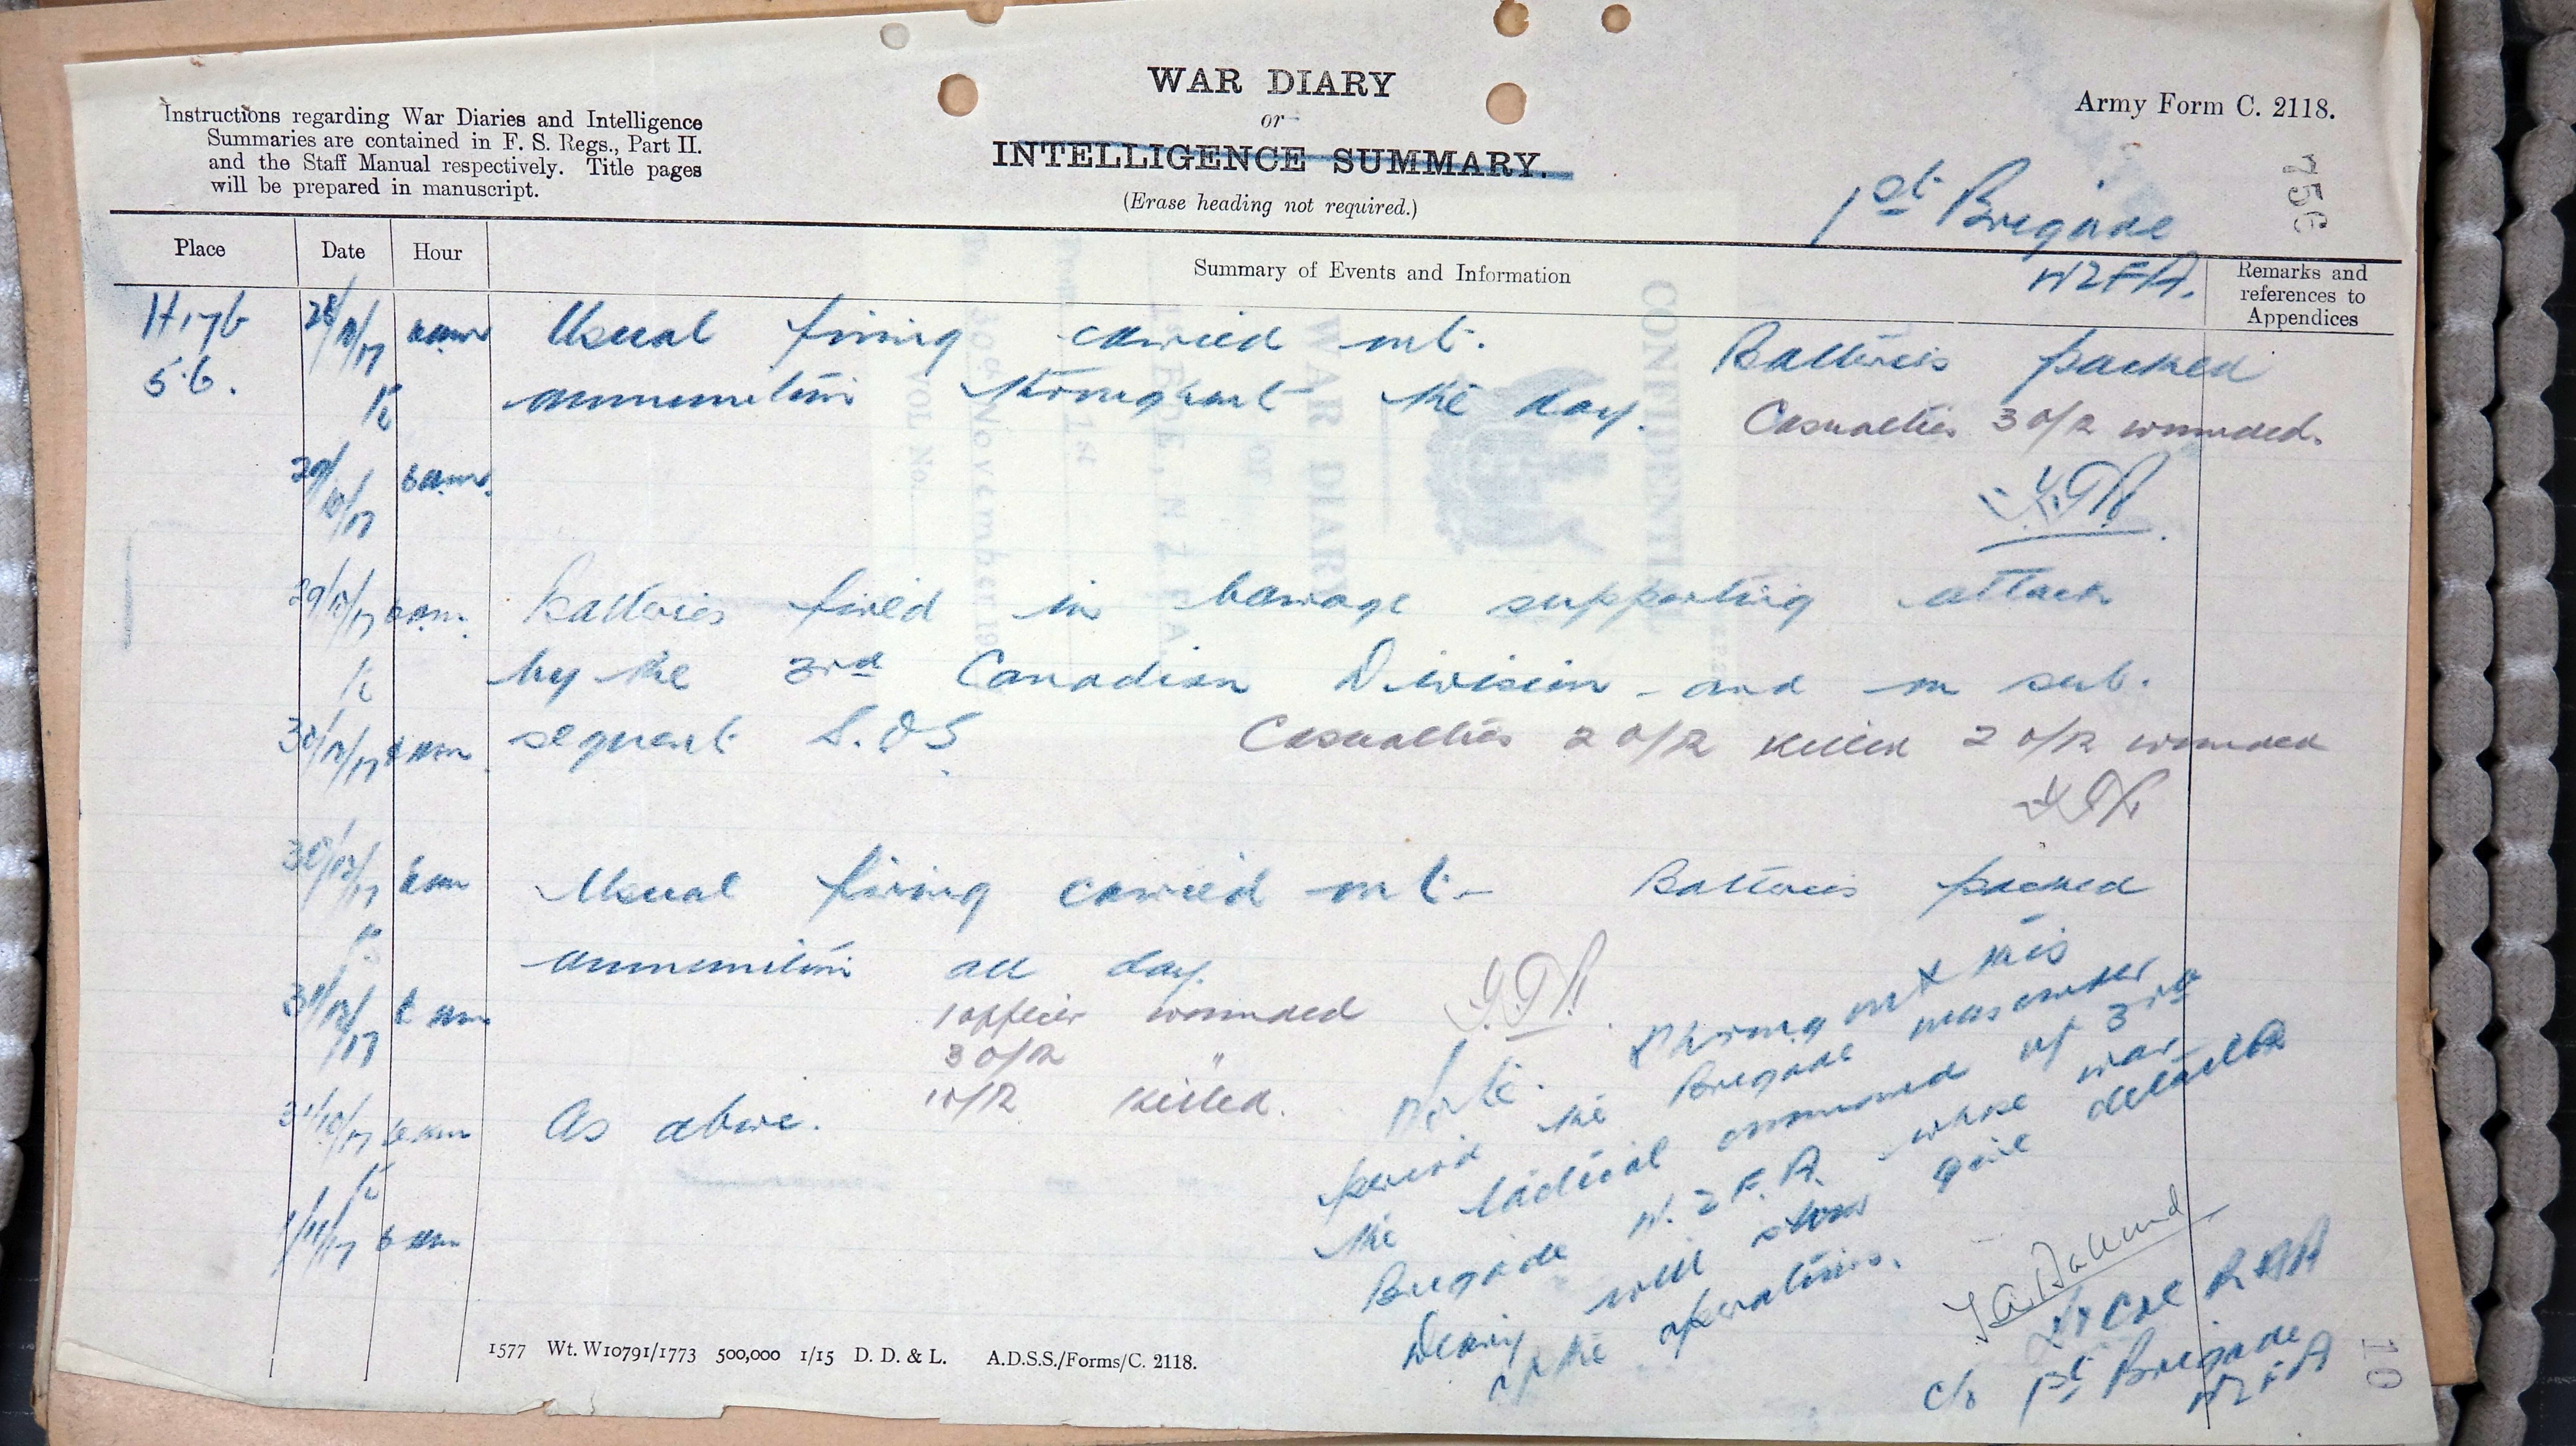 WAR DIARY
or
INTELLIGENCE SUMMARY.
(Erase heading not required.)
Instructions regarding War Diaries and Intelligence
Summaries are contained in F. S. Regs., Part II.
and the Staff Manual respectively. Title pages
will be prepared in manuscript.
Army Form C. 2118.
756
1st Brigade
NZFA.
Place Date Hour Summary of Events and Information Remarks and
references to
Appendices
H17b 28/10/17 6am Usual firing carried out. Batteries packed
5.6. to ammunition throughout the day. Casualties 3 O/R wounded.
29/10/17 6am.
29/10/17 6am. Batteries fired in barrage supporting attack
to by the 3rd Canadian Division - and on sub.
30/10/17 6am sequent S.O.S. Casualties 2 O/R killed 2 O/R wounded
30/10/17 6am Usual firing carried out - Batteries packed
to ammunition all day.
31/10/17 6am 1 officer wounded
3 O/R "
1 O/R killed.
31/10/17 6am As above.
to
1/11/17 6am
Note. Throughout this
period the Brigade was under
the tactical command of 3rd
Brigade N.Z.F.A. whose war
Diary will show give details
of the operations.
Lt Col RNZA
c/o 1st Brigade
NZFA
10
1577 Wt. W10791/1773 500,000 1/15 D. D. & L. A.D.S.S./Forms/C. 2118.
CONFIDENTIAL
WAR DIARY
OF
1st
30th November 19
VOL No.